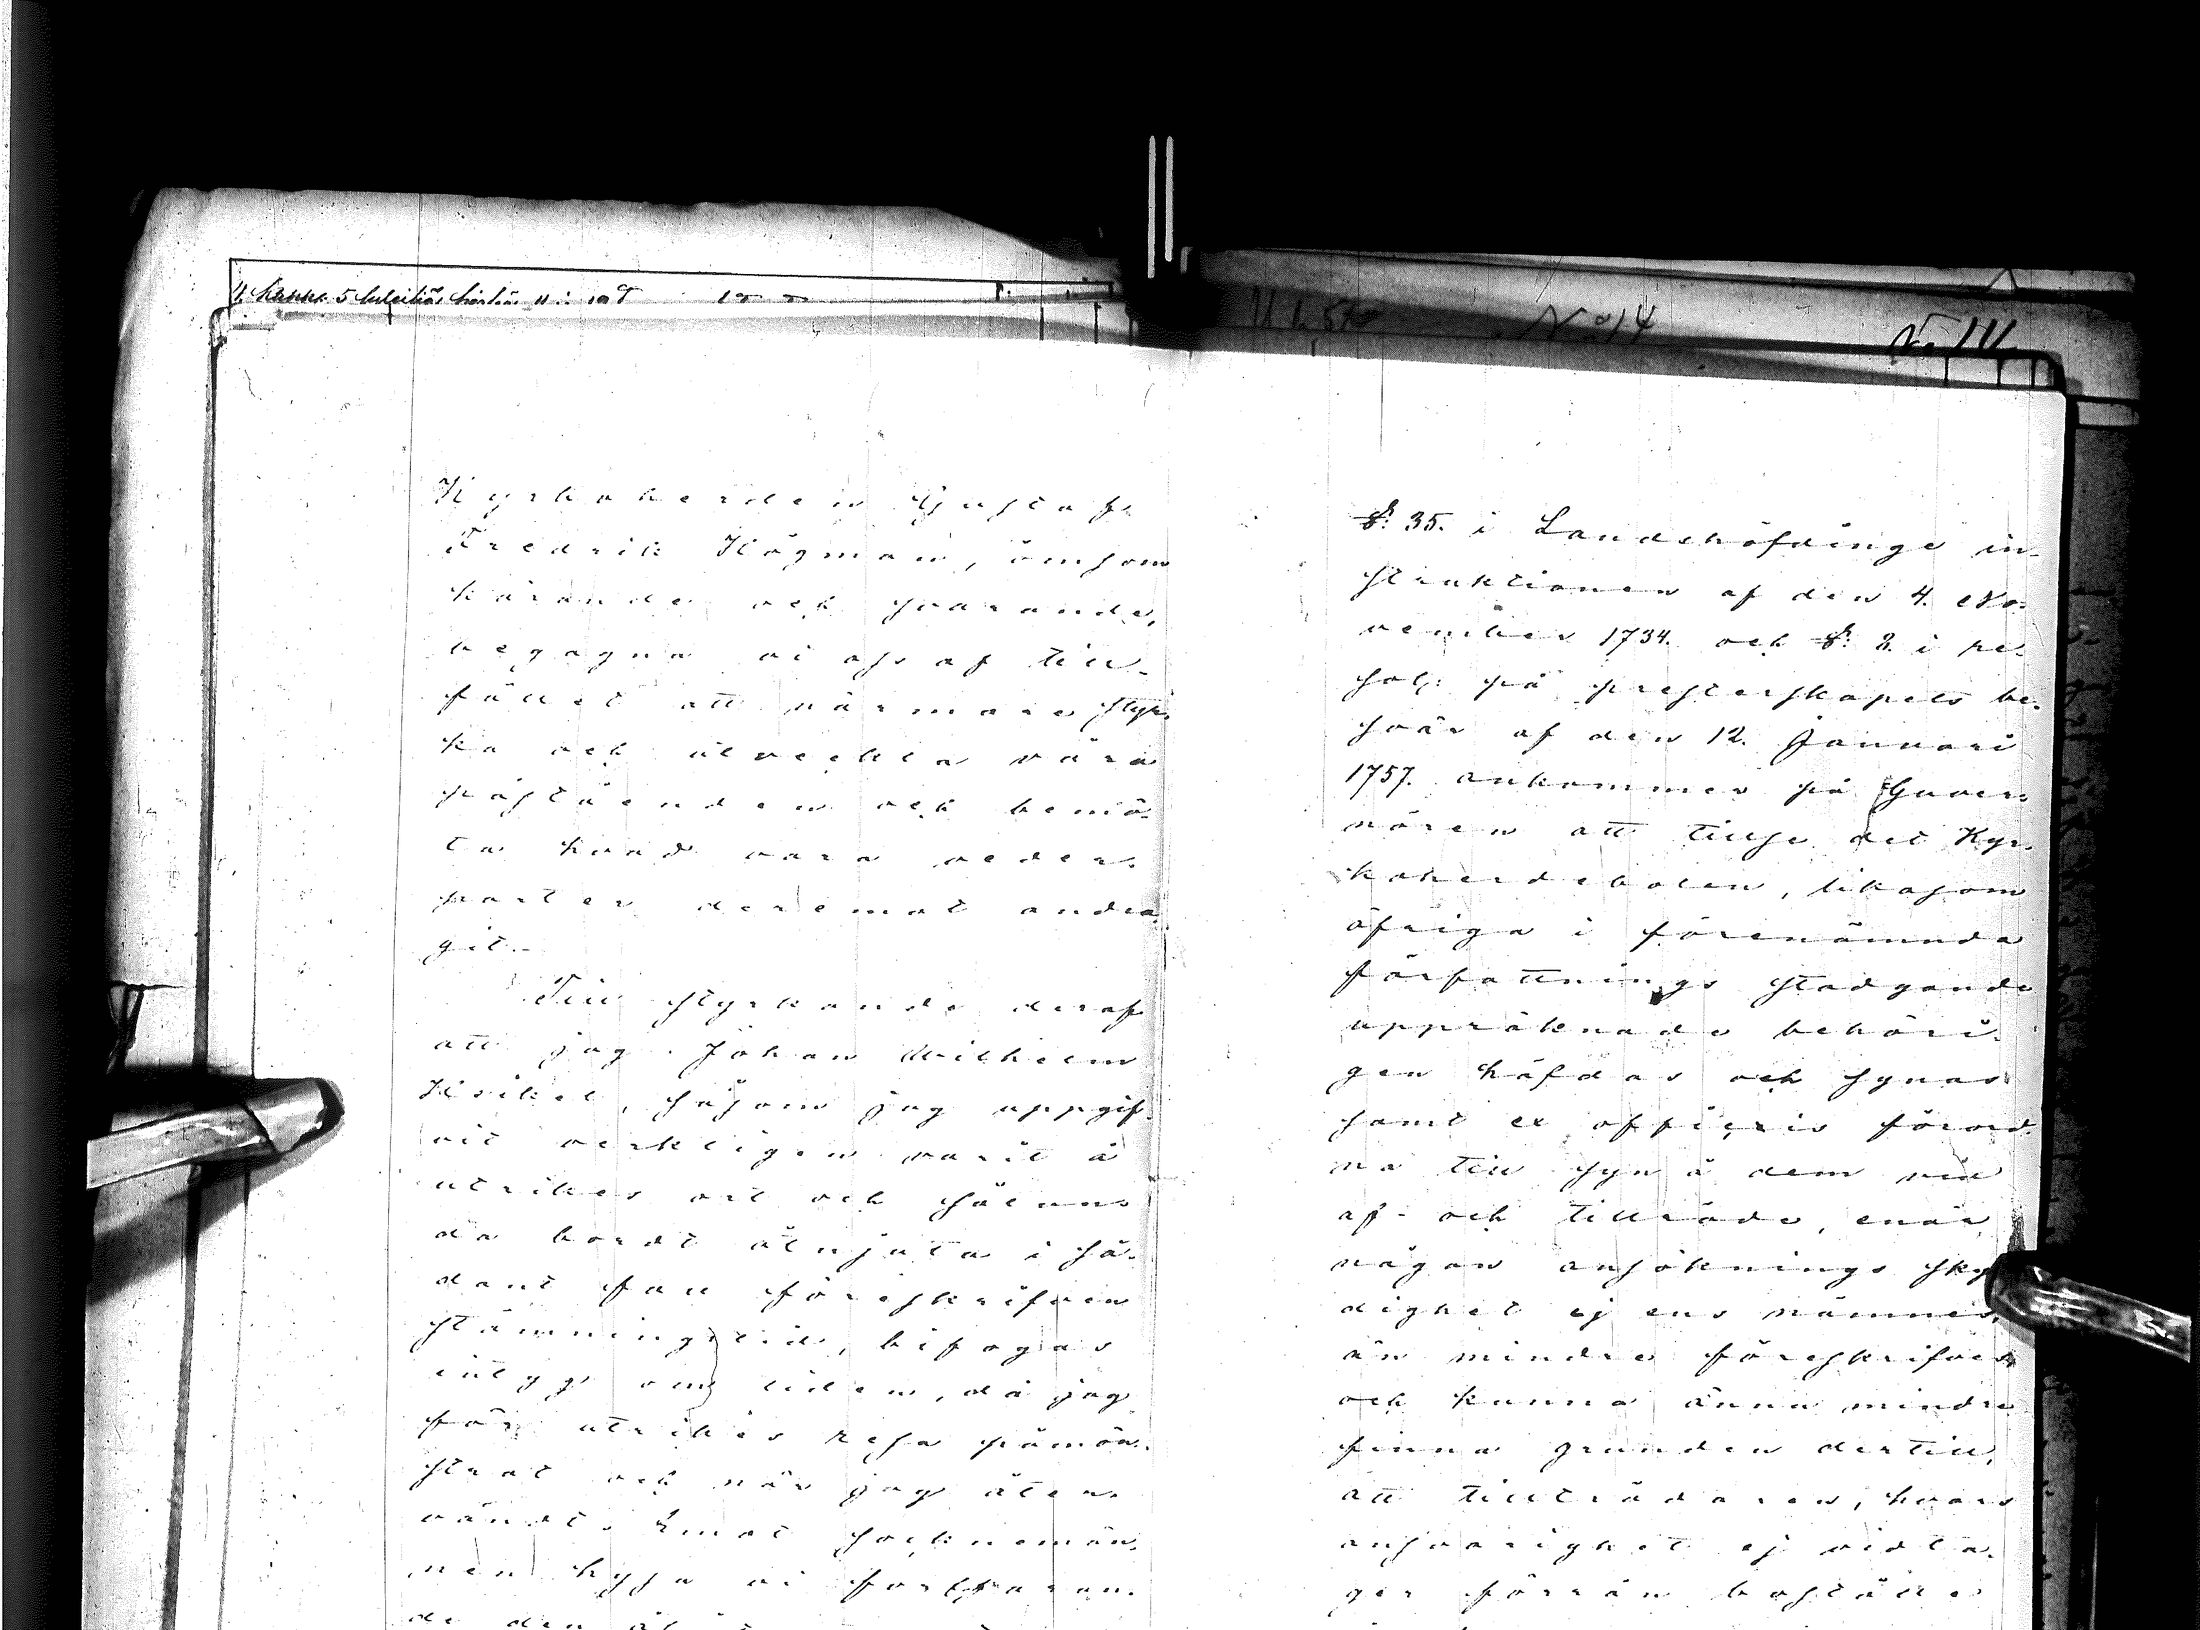 Kyrkoherden Gustaf
Fredrik Högman, ömsom
kärande och svarande,
begagna vi oss af till-
fället att närmare styr-
ka och utveckla våra
påståenden och bemö-
ta hvad våra veder-
parter deremot andra-
git.-
Till styrkande deraf
att jag Johan Wilhelm
såsom jag uppgif-
vit verkligen varit å
utrikes ort och sålun-
da bordt åtnjuta i så-
dant fall föreskrifven
stämningstid, bifogas
intyg om tiden, då jag
för utrikes resa påmön-
strat och när jag åter-
vändt. Emot socknemän-
nen hysa vi fortfaran-
de den
N:o 14
§: 35. i Landshöfdinge in-
struktionen af den 4. No-
vember 1734. och §: 2. i re-
sol: på presterskapets be-
svär af den 12. Januari
1757. ankommer på Guver-
nören att tillse det Kyr-
koherdebolen, likasom
öfriga i förenämnda
författnings stadgande
uppräknade behöri-
gen häfdas och synas
samt ex officiis förord-
na till syn å dem vid
af- och tillträde, enär
någon ansöknings skyl-
dighet ej ens nämnes,
än mindre föreskrifves
och kunna ännu mindre
finna grunden dertill,
att tillträdaren, hvars
ansvarighet ej vidta-
ger förrän boställe